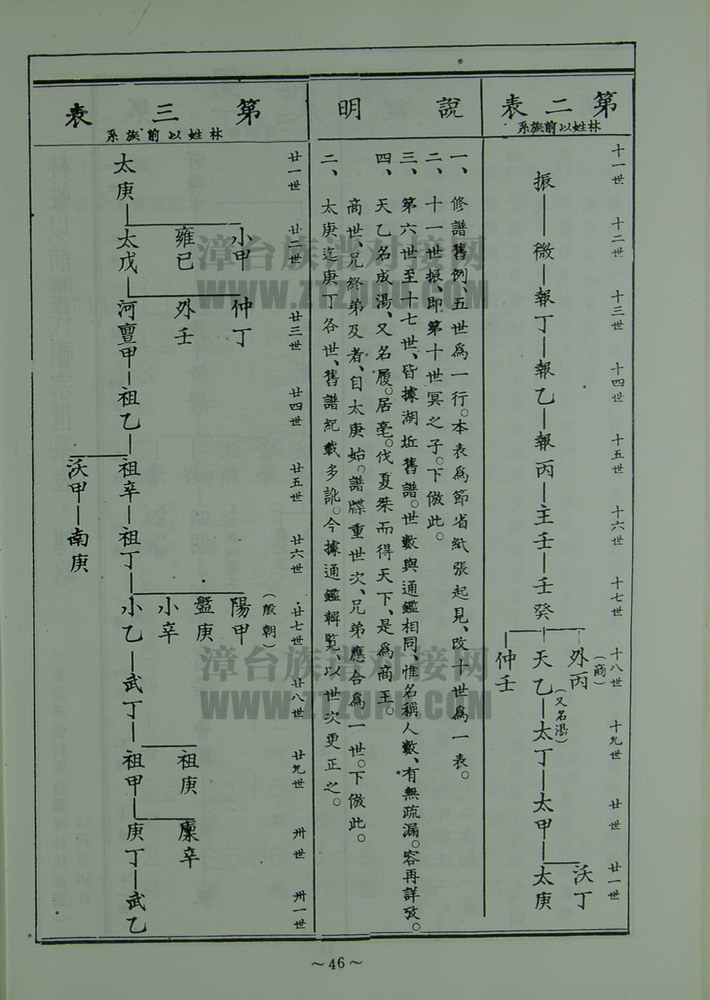 第二表
林姓以前族系
十一世 十二世 十三世 十四世 十五世 十六世 十七世 十八世 十九世 廿世 廿一世
(商)
外丙 沃丁
(又名湯)
振—微—報丁—報乙—報丙—主壬—壬癸—天乙—太丁—太甲—太庚
仲壬
說明
一、修譜舊例、五世為一行。本表為節省紙張起見、改十世為一表。
二、十一世振、即第十世冥之子。下倣此。
三、第六世至十七世、皆據湖坵舊譜。世數與通鑑相同、惟名稱人數、有無疏漏。容再詳攷。
四、天乙名成湯、又名履。居亳。伐夏桀而得天下、是為商王。
商世、兄終弟及者、自太庚始。譜牒重世次、兄弟應合為一世。下倣此。
二、太庚迄庚丁各世、舊譜紀載多訛。今據通鑑輯覧、以世次更正之。
第三表
林姓以前族系
廿一世 廿二世 廿三世 廿四世 廿五世 廿六世 廿七世 廿八世 廿九世 卅世 卅一世
(殷朝)
小甲 仲丁 陽甲
雍已 外壬 盤庚 祖庚 廩辛
小辛
太庚—太戊—河亶甲—祖乙—祖辛—祖丁—小乙—武丁—祖甲—庚丁—武乙
沃甲—南庚
～46～
漳台族谱对接网
WWW.ZTZUPU.COM
漳台族谱对接网
WWW.ZTZUPU.COM